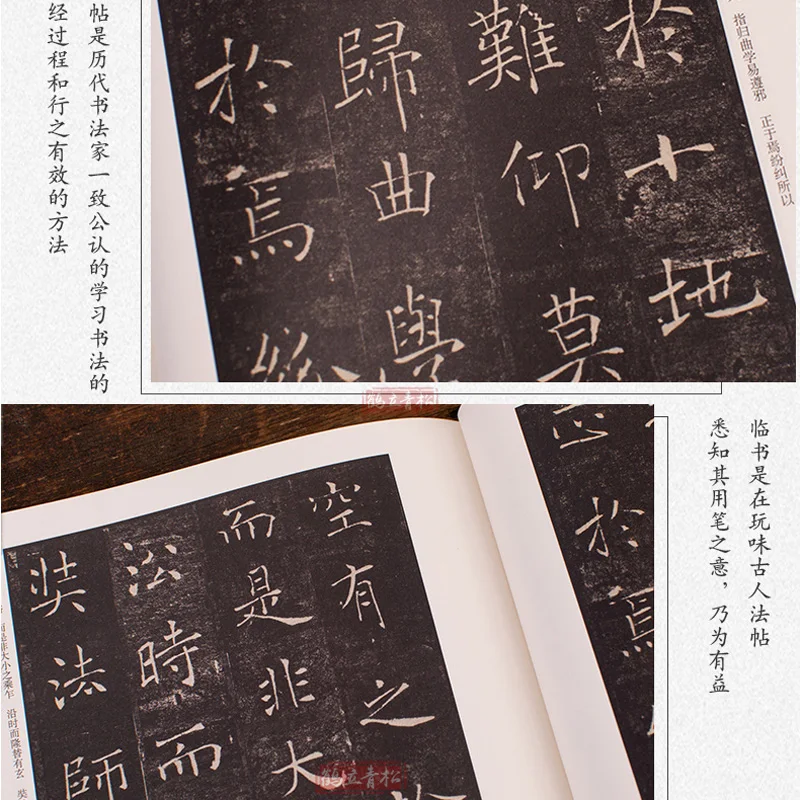 帖是历代书法家一致公认的学习书法的
经过程和行之有效的方法
指归曲学易遵邪 正于焉纷纠所以
於十地
難仰莫
歸曲學
於焉
鹤立青松
临书是在玩味古人法帖
悉知其用笔之意，乃为有益
正於焉
空有之
而是非大
㳂時而
奘法師
而是非大小之乘乍 沿时而隆替有玄 奘
鹤立青松